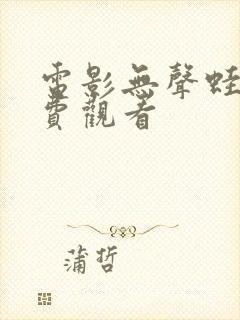 電影無聲蛙
費觀看
蒲哲